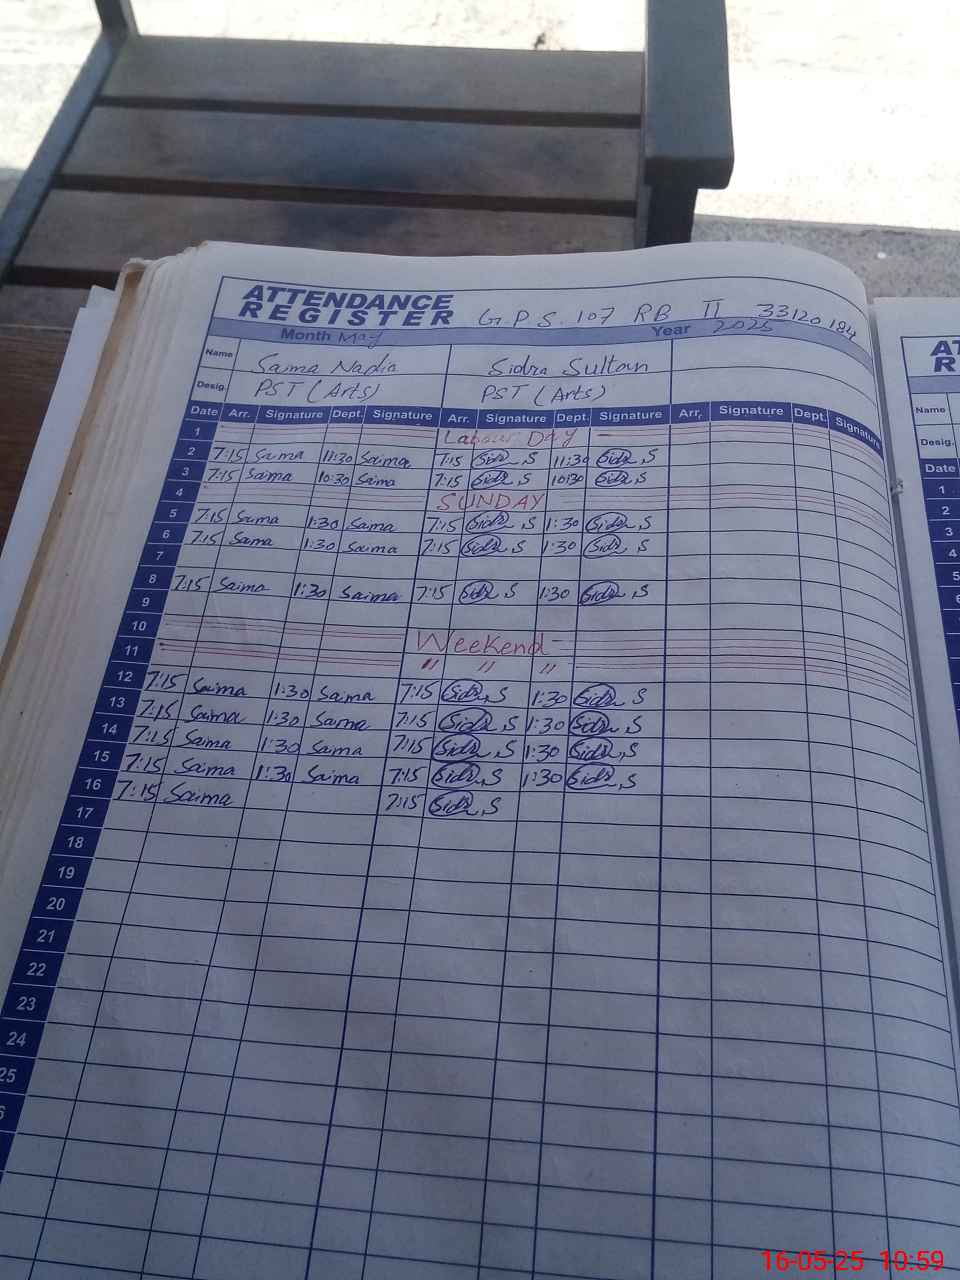 ATTENDANCE
REGISTER G.P.S. 107 RB II 33120184
Month May Year 2025
Name Saima Nadia Sidra Sultan
Desig. PST (Arts) PST (Arts)
Date Arr. Signature Dept. Signature Arr. Signature Dept. Signature Arr, Signature Dept. Signature
1 Labour Day
2 7:15 Saima 11:30 Saima 7:15 Sidr, S 11:30 Sidr, S
3 7:15 Saima 10:30 Saima 7:15 Sidr, S 10:30 Sidr, S
4 SUNDAY
5 7:15 Saima 1:30 Saima 7:15 Sidr, S 1:30 Sidr, S
6 7:15 Saima 1:30 Saima 7:15 Sidr, S 1:30 Sidr, S
7
8 7:15 Saima 1:30 Saima 7:15 Sidr, S 1:30 Sidr, S
9
10 Weekend
11 " " "
12 7:15 Saima 1:30 Saima 7:15 Sidr, S 1:30 Sidr, S
13 7:15 Saima 1:30 Saima 7:15 Sidr, S 1:30 Sidr, S
14 7:15 Saima 1:30 Saima 7:15 Sidr, S 1:30 Sidr, S
15 7:15 Saima 1:30 Saima 7:15 Sidr, S 1:30 Sidr, S
16 7:15 Saima 7:15 Sidr, S
17
18
19
20
21
22
23
24
25
6
AT
R
Name
Desig.
Date
1
2
3
4
5
6
16-05-25 10:59